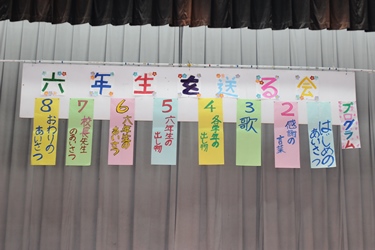 六年生を送る会
プログラム
はじめの
あいさつ
2 感謝の
言葉
3 歌
4 各学年の
出し物
5 六年生の
出し物
6 六年生の
7 校長先生
のあいさつ
8 おわりの
あいさつ